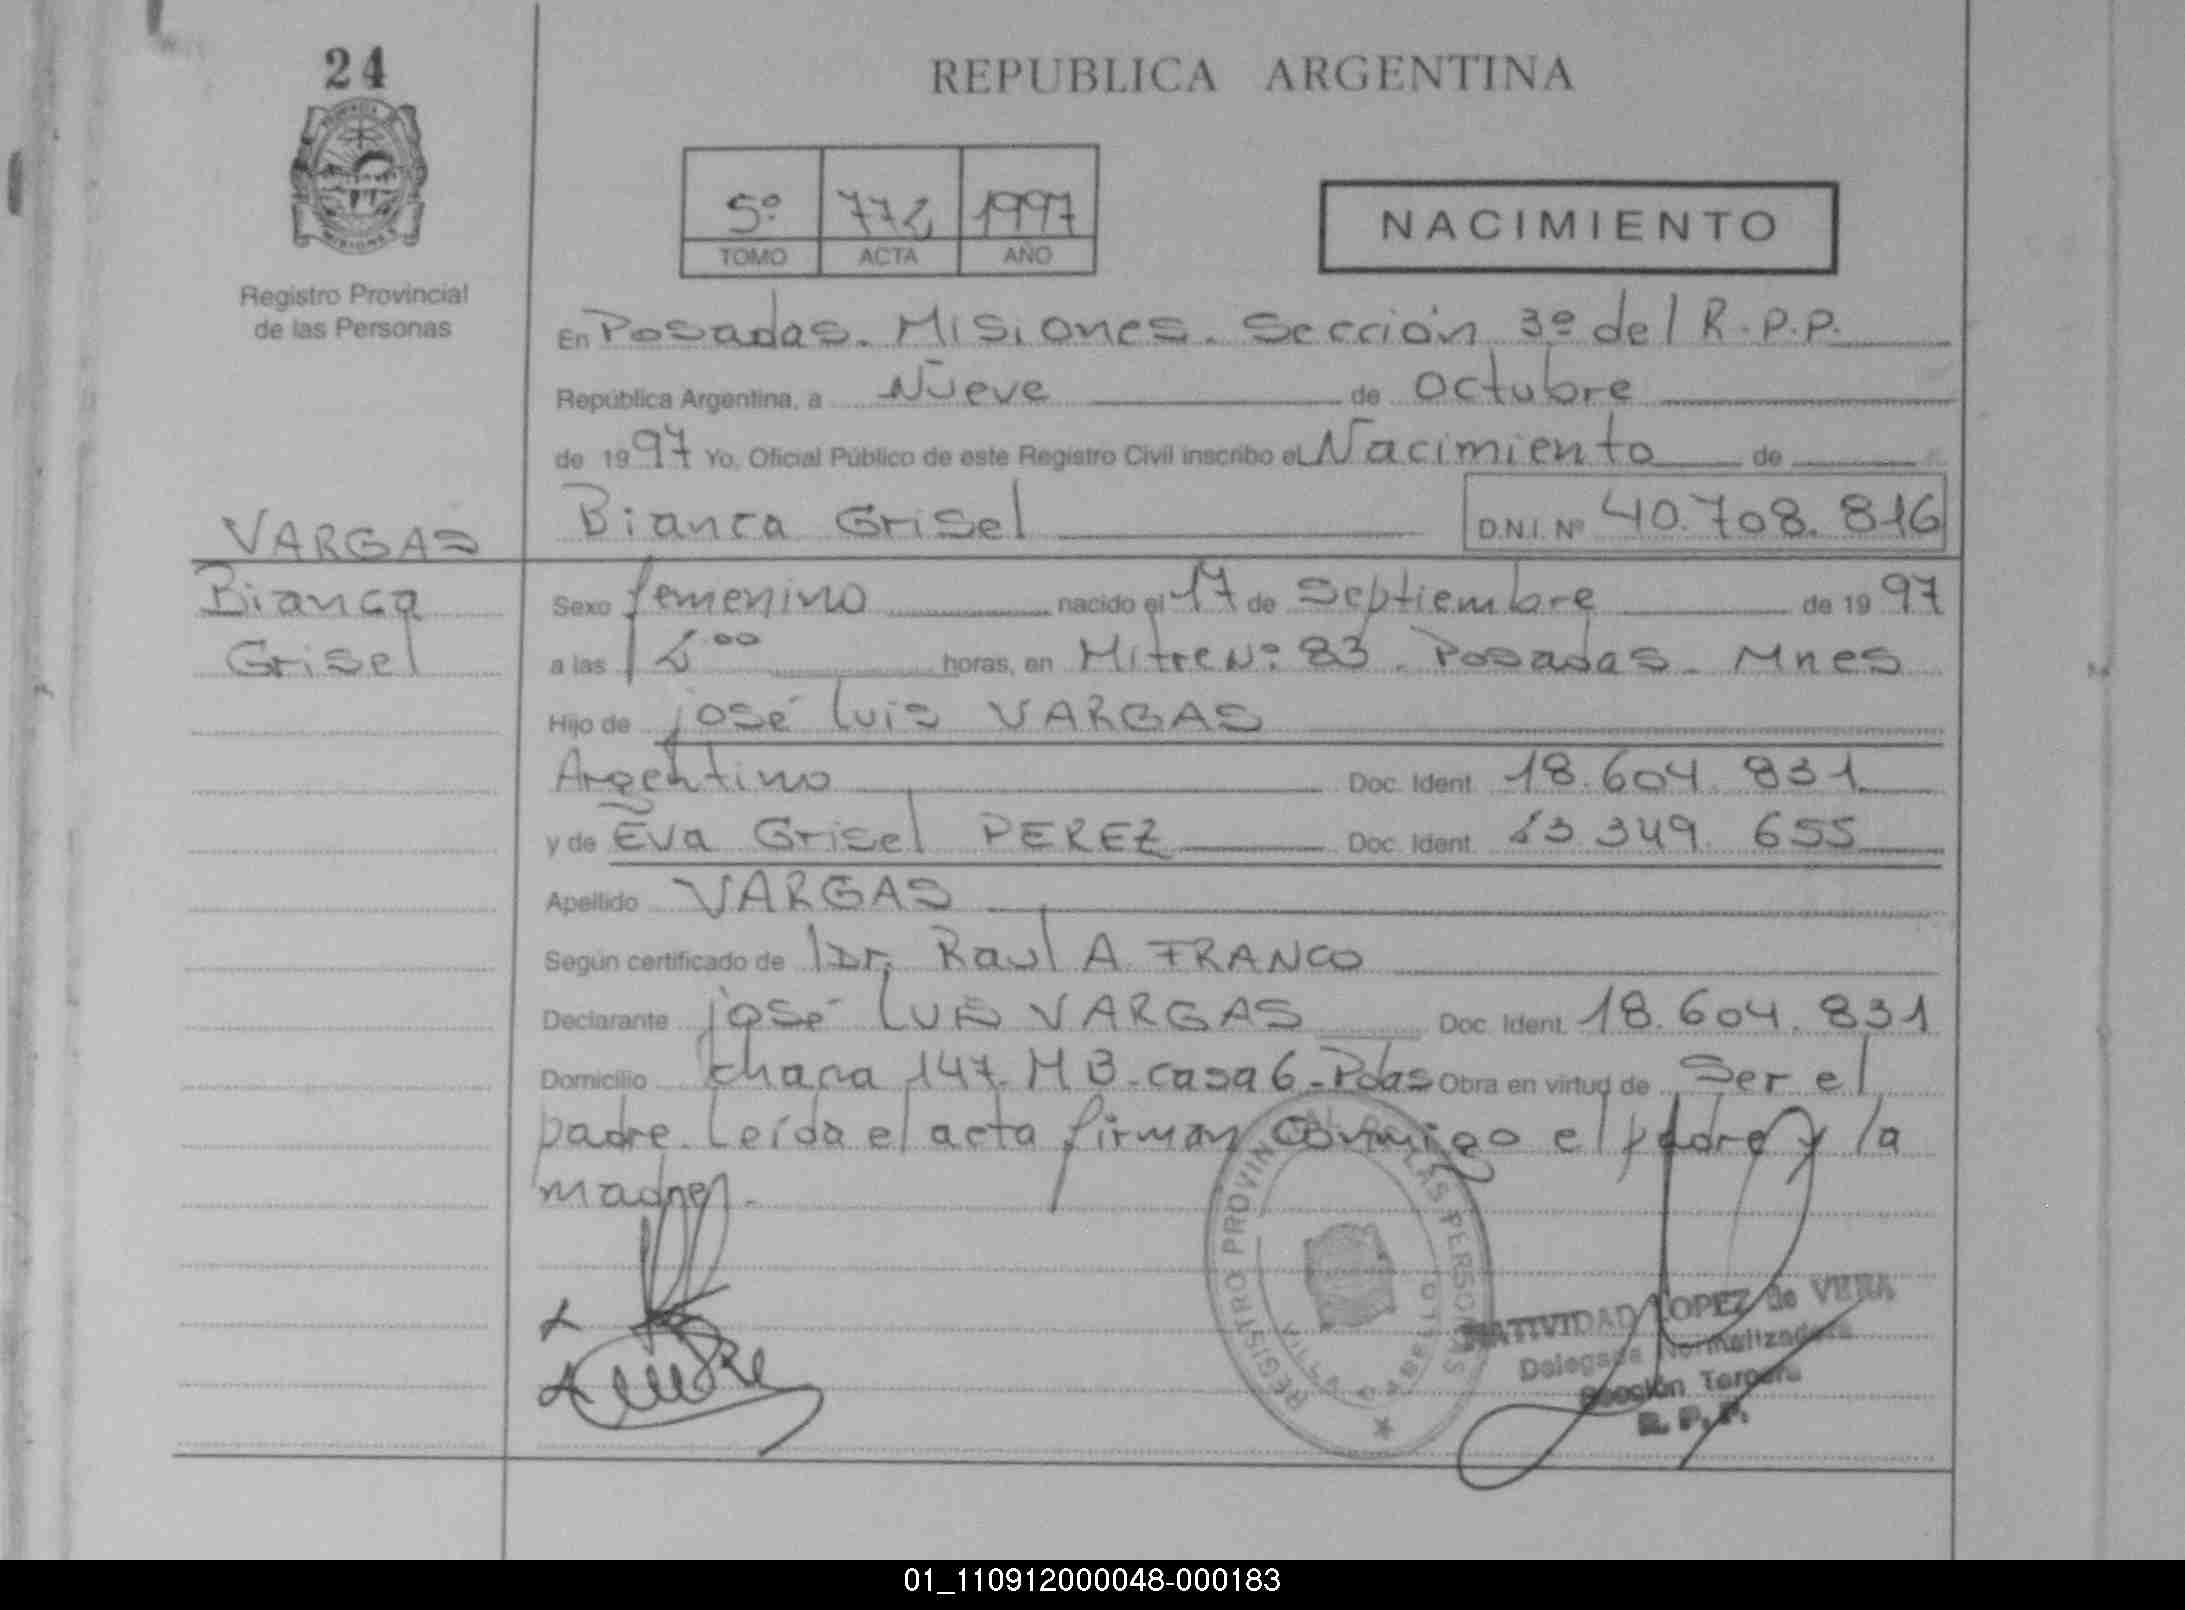 24
REPUBLICA ARGENTINA
5º 772 1997
TOMO ACTA AÑO
NACIMIENTO
Registro Provincial
de las Personas
En Posadas. Misiones. Sección 3º del R.P.P.
República Argentina, a Nueve de Octubre
de 1997 Yo, Oficial Público de este Registro Civil inscribo el Nacimiento de
Bianca Grisel D.N.I. Nº 40.708.816
VARGAS
Bianca
Grisel
Sexo femenino nacido el 17 de Septiembre de 1997
a las 12⁰⁰ horas, en Mitre Nº 83. Posadas. Mnes
Hijo de josé Luis VARGAS
Argentino Doc. Ident. 18.604.831
y de Eva Grisel PEREZ Doc. Ident. 23.349.655
Apellido VARGAS
Según certificado de Dr. Raul A. FRANCO
Declarante josé Luis VARGAS Doc. Ident. 18.604.831
Domicilio chacra 147. M B. casa 6 - Pdas Obra en virtud de Ser el
padre. Leída el acta firman conmigo el padre y la
madre.
REGISTRO PROVINCIAL DE LAS PERSONAS
NATIVIDAD LOPEZ de VIERA
Delegada Normalizadora
Sección Tercera
R. P. P.
01_110912000048-000183